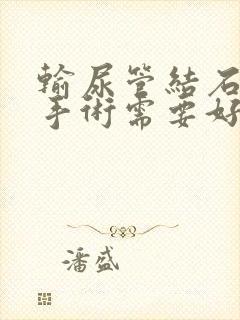 輸尿管結石
手術需要好
潘盛